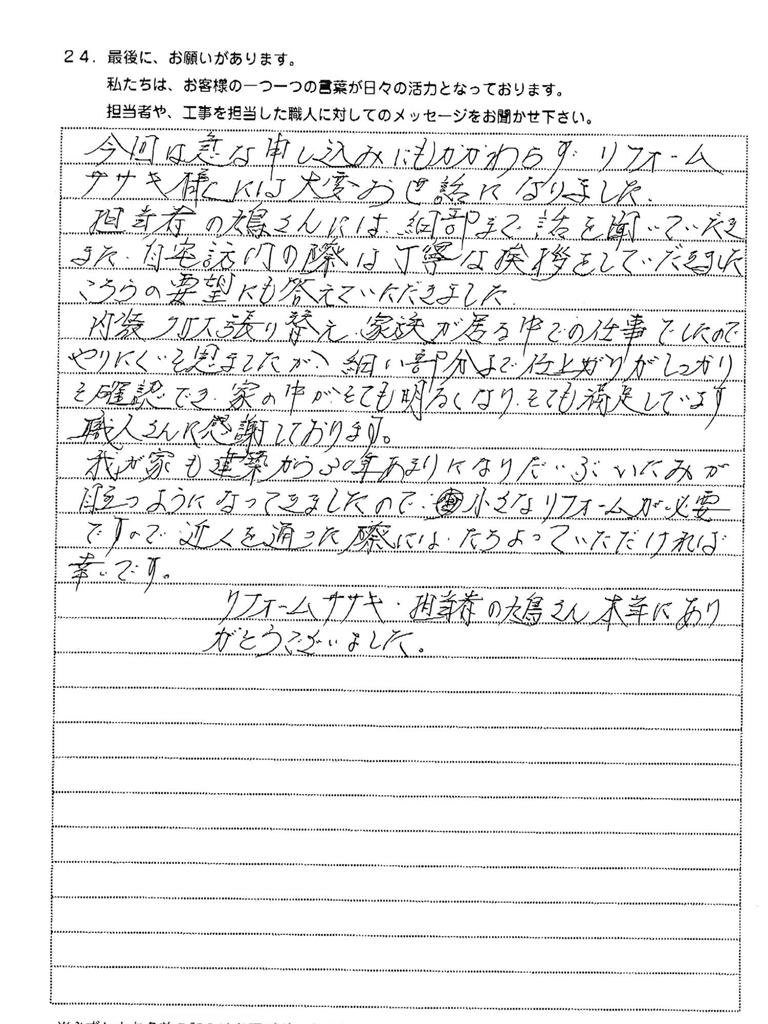 24. 最後に、お願いがあります。
私たちは、お客様の一つ一つの言葉が日々の活力となっております。
担当者や、工事を担当した職人に対してのメッセージをお聞かせ下さい。
今回は急な申し込みにもかかわらず リフォーム
ササキ様には大変お世話になりました.
担当者の鳩さんには、細部まで話を聞いていただき
また、自宅訪問の際は丁寧な挨拶をしていただきました
こちらの要望にも答えていただきました.
内装クロス張り替え、家族が居る中での仕事でしたので
やりにくいと思ましたが、細い部分まで仕上がりがしっかり
と確認でき、家の中がとても明るくなり、とても満足しています
職人さんに感謝しております。
我が家も建築から30年あまりになりだいぶいたみが
目立つようになってきましたので、小さなリフォームが必要
ですので近くを通った際には、たちよっていただければ
幸いです。
リフォームササキ・担当者の鳩さん 本当にあり
がとうございました。